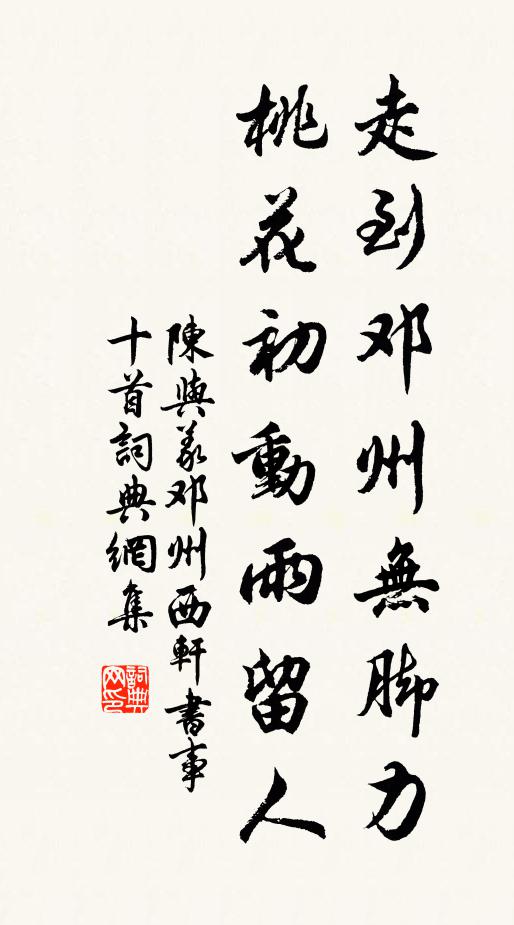 走到邓州無脚力
桃花初動雨留人
陳與義邓州西軒書事
十首詞典網集
詞典網印